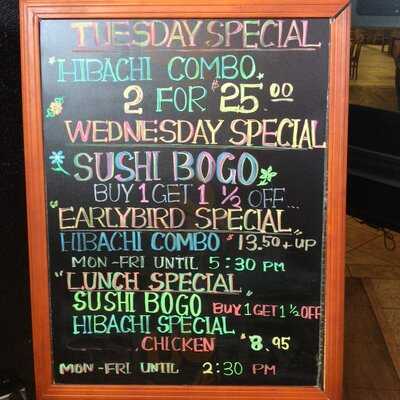 TUESDAY SPECIAL
"HIBACHI COMBO"
2 FOR $25.00
WEDNESDAY SPECIAL
SUSHI BOGO
BUY 1 GET 1 1/2 OFF...
EARLYBIRD SPECIAL"
HIBACHI COMBO $13.50 + UP
MON-FRI UNTIL 5:30 PM
"LUNCH SPECIAL"
SUSHI BOGO BUY 1 GET 1 1/2 OFF
HIBACHI SPECIAL
CHICKEN $8.95
MON-FRI UNTIL 2:30 PM